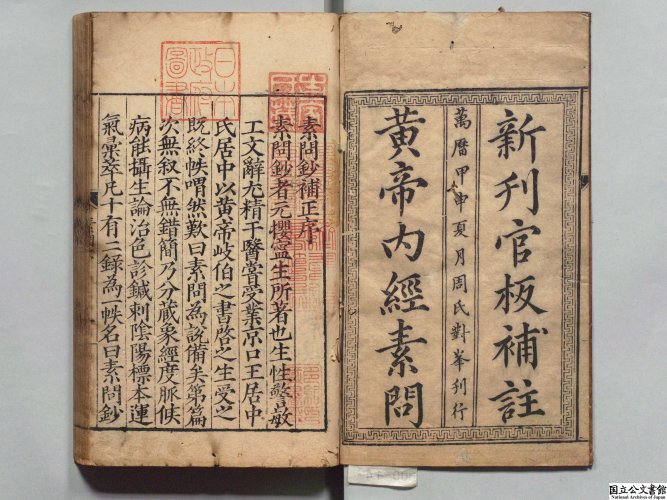 新刊官板補註
萬曆甲申夏月周氏對峯刊行
黃帝內經素問
素問鈔補正序
素問鈔者元攖寧生所著也生性警敏
工文辭尤精于醫嘗受業京口王居中
氏居中以黃帝岐伯之書啓之生受之
既終帙喟然歎曰素問為說備矣第篇
次無敘不無錯簡乃分藏象經度脈候
病能攝生論治色診鍼刺陰陽標本運
氣彙萃凡十有二錄為一帙名曰素問鈔
日本
政府
圖書
国立公文書館
National Archives of Japan